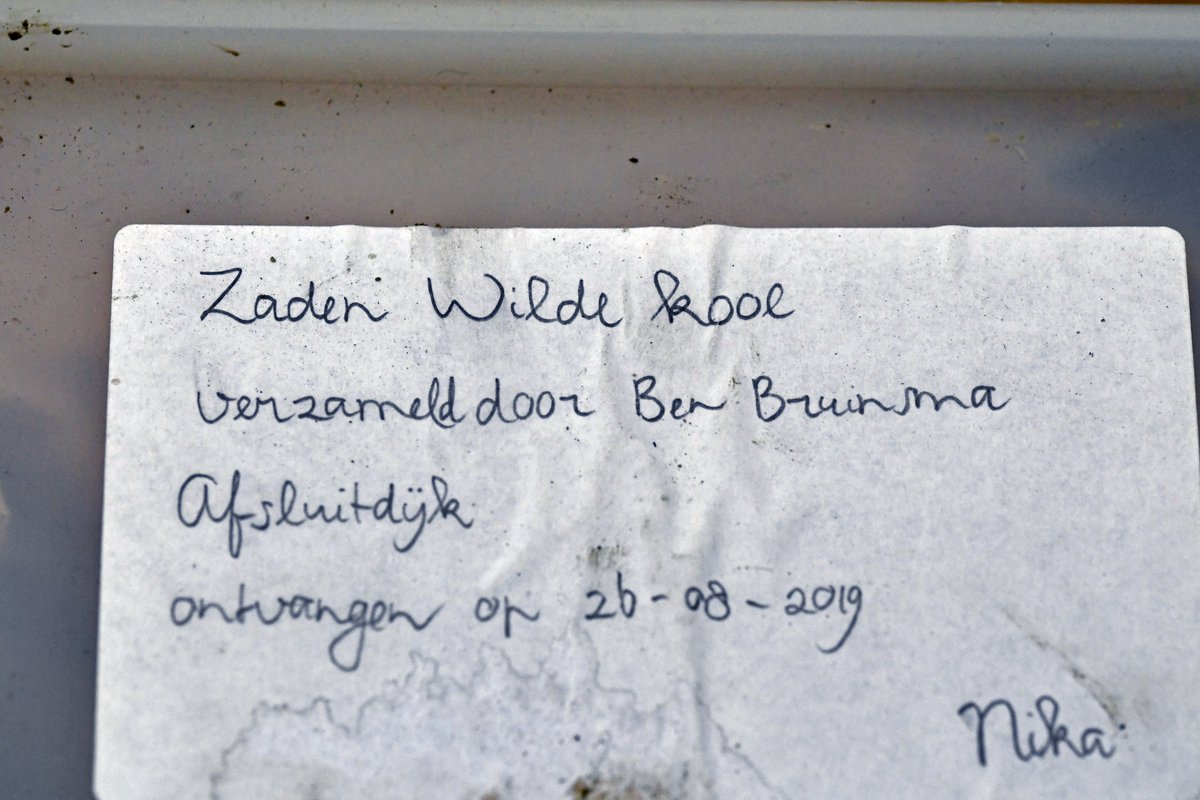 Zaden Wilde kool
verzameld door Ben Bruinsma
Afsluitdijk
ontvangen op 26-08-2019
Nika